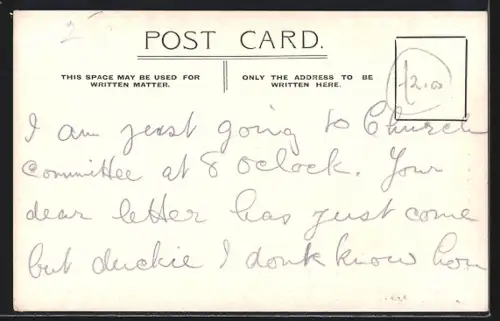 2
POST CARD.
THIS SPACE MAY BE USED FOR
WRITTEN MATTER.
ONLY THE ADDRESS TO BE
WRITTEN HERE.
£2.00
I am just going to Church
Committee at 8 oclock. Your
dear letter has just come
but duckie I dont know how